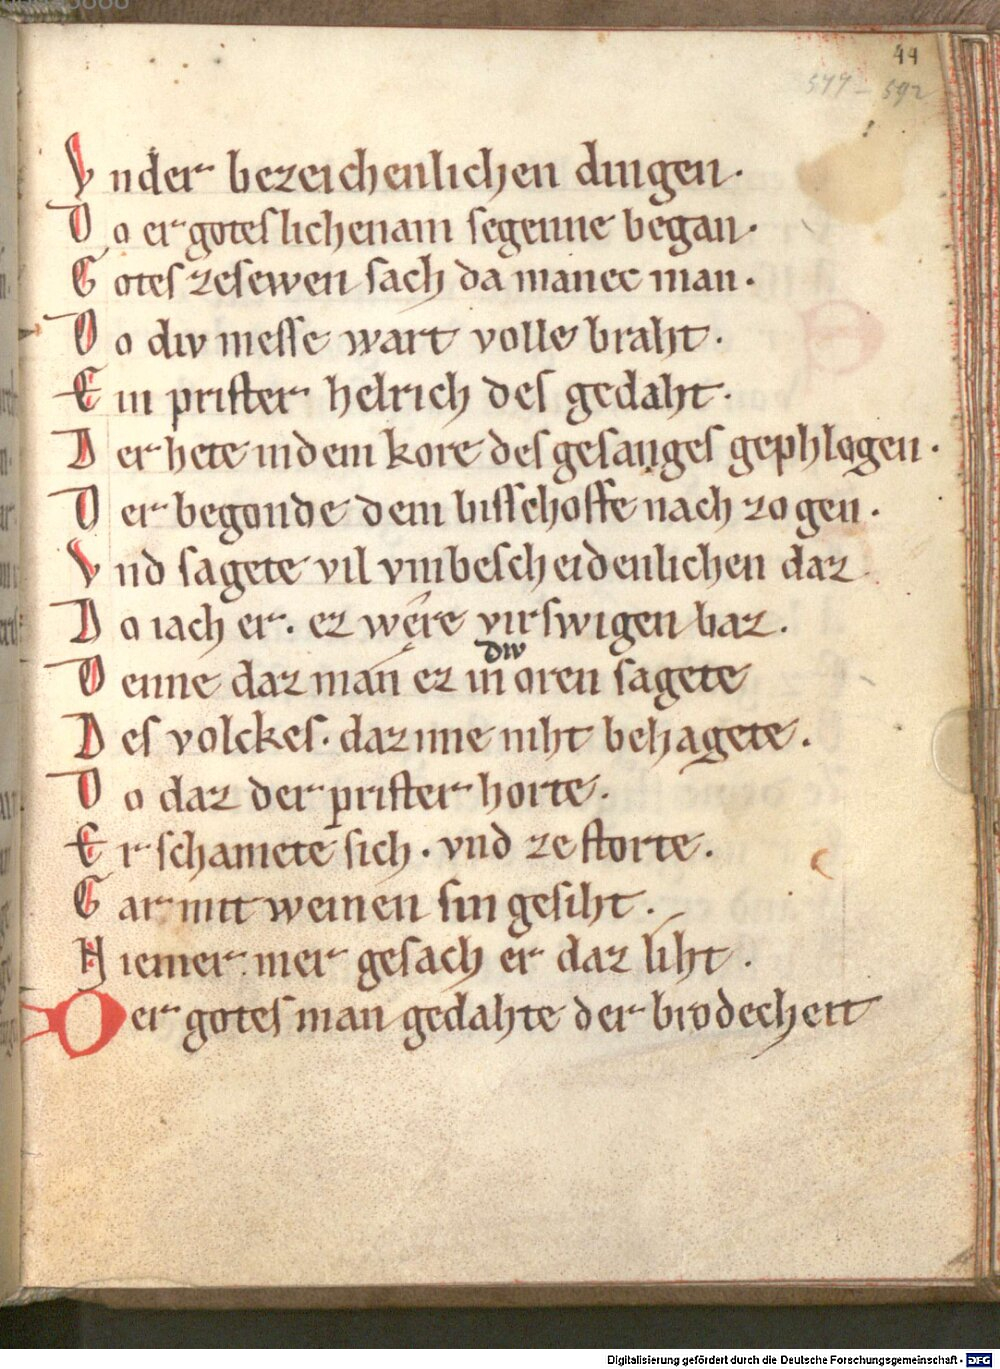 44
577 – 592
Vnder bezeichenlichen dingen.
Do er gotes lichenam segenne began.
Gotes zesewen sach da manec man.
Do div messe wart volle braht.
Ein prister helrich des gedaht.
Der hete in dem kore des gesanges gephlogen.
Der begonde dem bisschoffe nach zogen.
Vnd sagete vil vnibescheidenlichen daz
Do iach er. ez were virswigen baz.
Denne daz man ez in div oren sagete
Des volckes. daz ime niht behagete.
Do daz der prister horte.
Er schamete sich. vnd zestorte.
Gar mit weinen sin gesiht.
Niemer mer gesach er daz liht.
Der gotes man gedahte der brodecheit
Digitalisierung gefördert durch die Deutsche Forschungsgemeinschaft - DFG